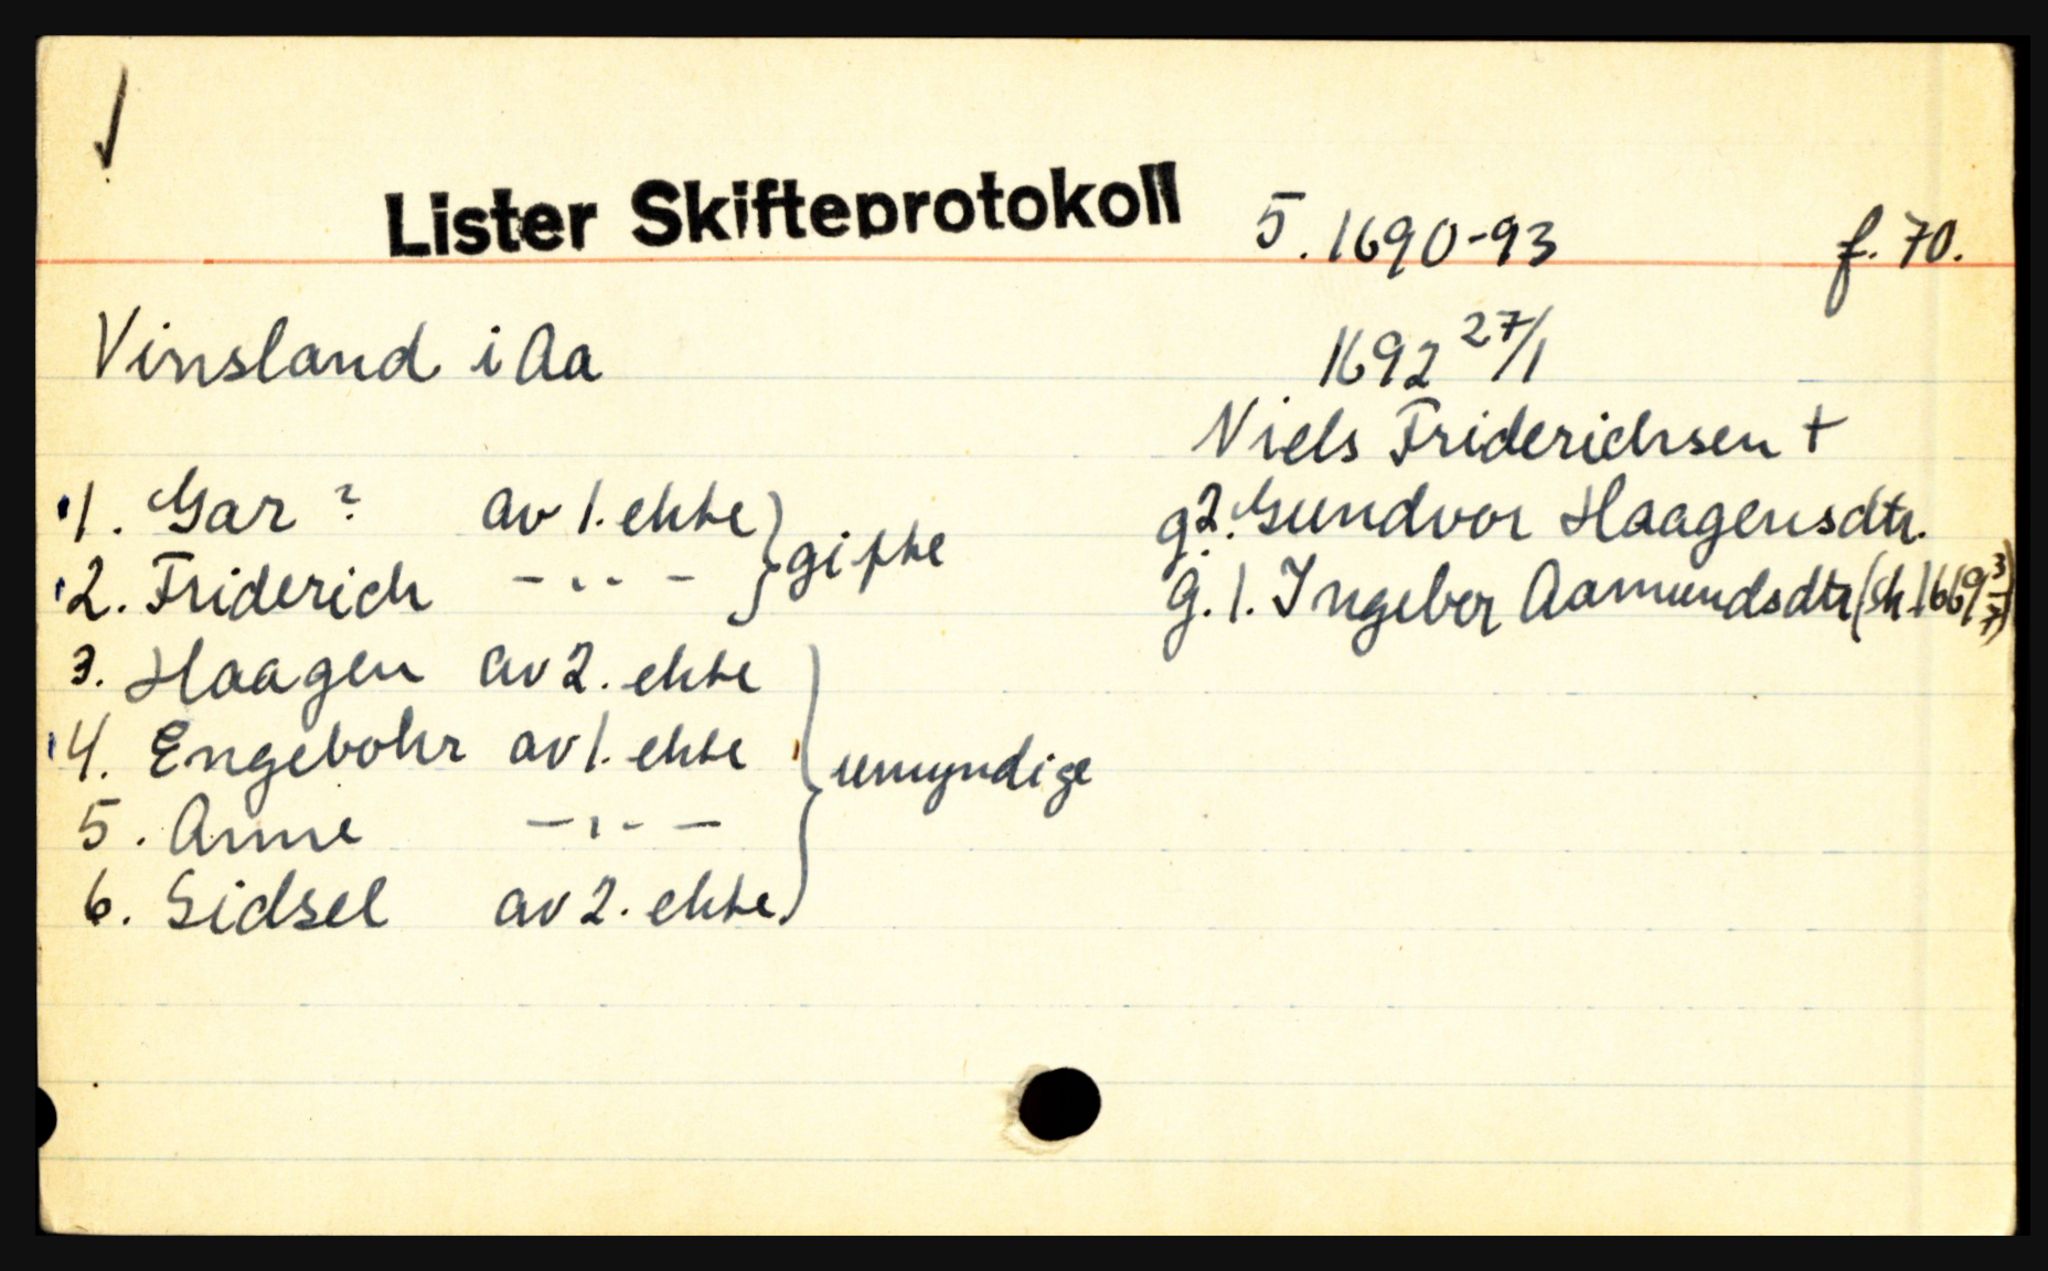 Lister Skifteprotokoll 5. 1690-93 f. 70.
Vinsland i Aa 1692 27/1
Niels Friderichsen +
g2. Gundvor Haagensdtr.
g. 1. Ingebor Aamundsdtr (sk. 1669 3/7)
1. Gar ? av 1. ekte } gifte
2. Friderich - " -
3. Haagen av 2. ekte
4. Engebohr av 1. ekte } umyndige
5. Anne - " -
6. Sidsel av 2. ekte